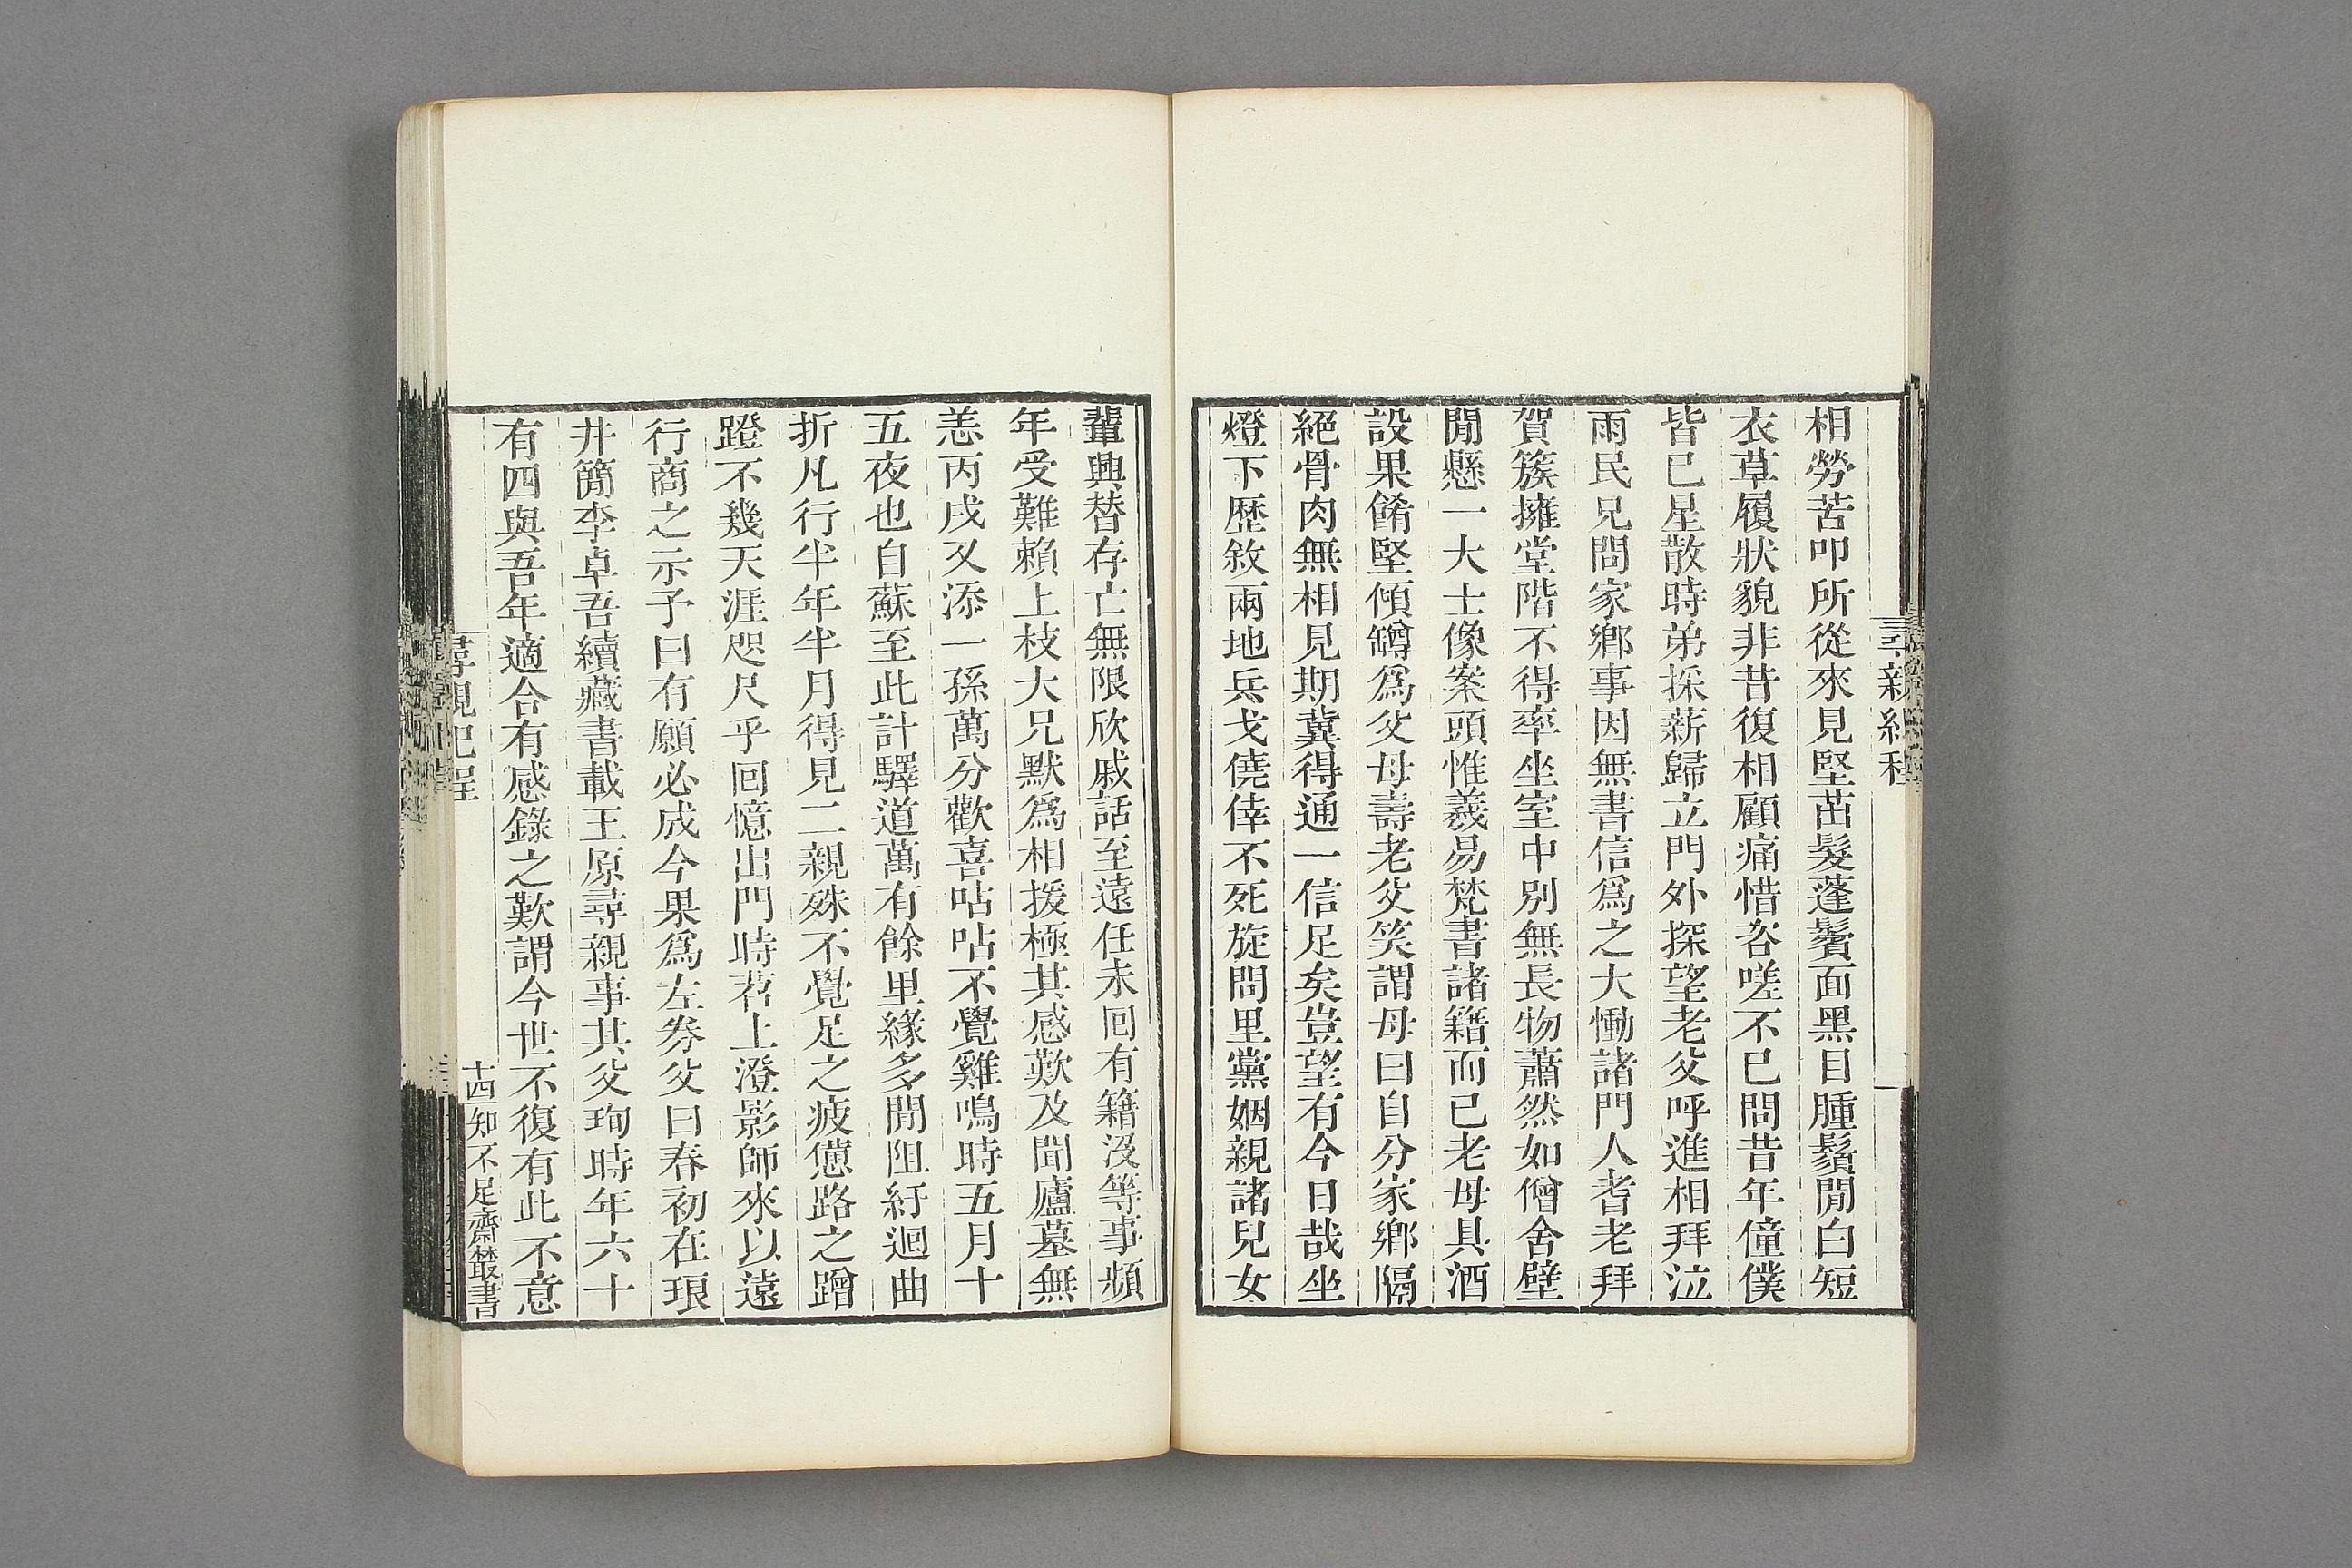 相勞苦叩所從來見堅茁髮蓬鬢面黑目腫鬚閒白短
衣草履狀貌非昔復相顧痛惜咨嗟不已問昔年僮僕
皆已星散時弟採薪歸立門外探望老父呼進相拜泣
雨民兄問家鄉事因無書信爲之大慟諸門人耆老拜
賀簇擁堂階不得率坐室中別無長物蕭然如僧舍壁
閒懸一大士像案頭惟羲易梵書諸籍而已老母具酒
設果餚堅傾罇爲父母壽老父笑謂母曰自分家鄉隔
絕骨肉無相見期冀得通一信足矣豈望有今日哉坐
燈下歷敘兩地兵戈僥倖不死旋問里黨姻親諸兒女
輩興替存亡無限欣戚話至遠任未回有籍沒等事頻
年受難賴上枝大兄默爲相援極其感歎及聞廬墓無
恙丙戌又添一孫萬分歡喜呫呫不覺雞鳴時五月十
五夜也自蘇至此計驛道萬有餘里緣多閒阻紆迴曲
折凡行半年半月得見二親殊不覺足之疲憊路之蹭
蹬不幾天涯咫尺乎回憶出門時茗上澄影師來以遠
行商之示予曰有願必成今果爲左券父曰春初在琅
井簡李卓吾續藏書載王原尋親事其父珣時年六十
有四與吾年適合有感錄之歎謂今世不復有此不意
尋親紀程
十四
知不足齋叢書